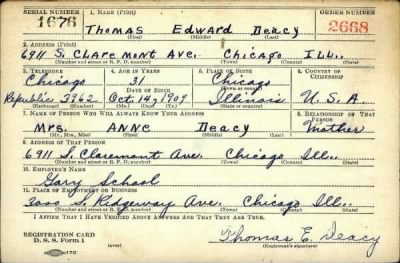 SERIAL NUMBER 1. NAME (Print) ORDER NUMBER
1676 Thomas Edward Deacy 2668
(First) (Middle) (Last)
2. ADDRESS (Print)
6911 S. Claremont Ave. Chicago Ill.
(Number and street) (Town) (County) (State)
3. TELEPHONE 4. AGE IN YEARS 5. PLACE OF BIRTH 6. COUNTRY OF CITIZENSHIP
Chicago 31 Chicago
DATE OF BIRTH (Town or county)
Republic 3962 Oct. 14, 1909 Illinois U.S.A.
(Mo.) (Day) (Yr.) (State or country)
7. NAME OF PERSON WHO WILL ALWAYS KNOW YOUR ADDRESS 8. RELATIONSHIP OF THAT PERSON
Mrs. Anne Deacy Mother
(Mr., Mrs., Miss) (First) (Middle) (Last)
9. ADDRESS OF THAT PERSON
6911 S. Claremont Ave. Chicago Ill.
(Number and street) (Town) (County) (State)
10. EMPLOYER'S NAME
Gary School
11. PLACE OF EMPLOYMENT OR BUSINESS
3000 S. Ridgeway Ave. Chicago Ill.
(Number and street) (Town) (County) (State)
I AFFIRM THAT I HAVE VERIFIED ABOVE ANSWERS AND THAT THEY ARE TRUE.
REGISTRATION CARD
D. S. S. Form 1 (over) Thomas E. Deacy
(Registrant's signature)